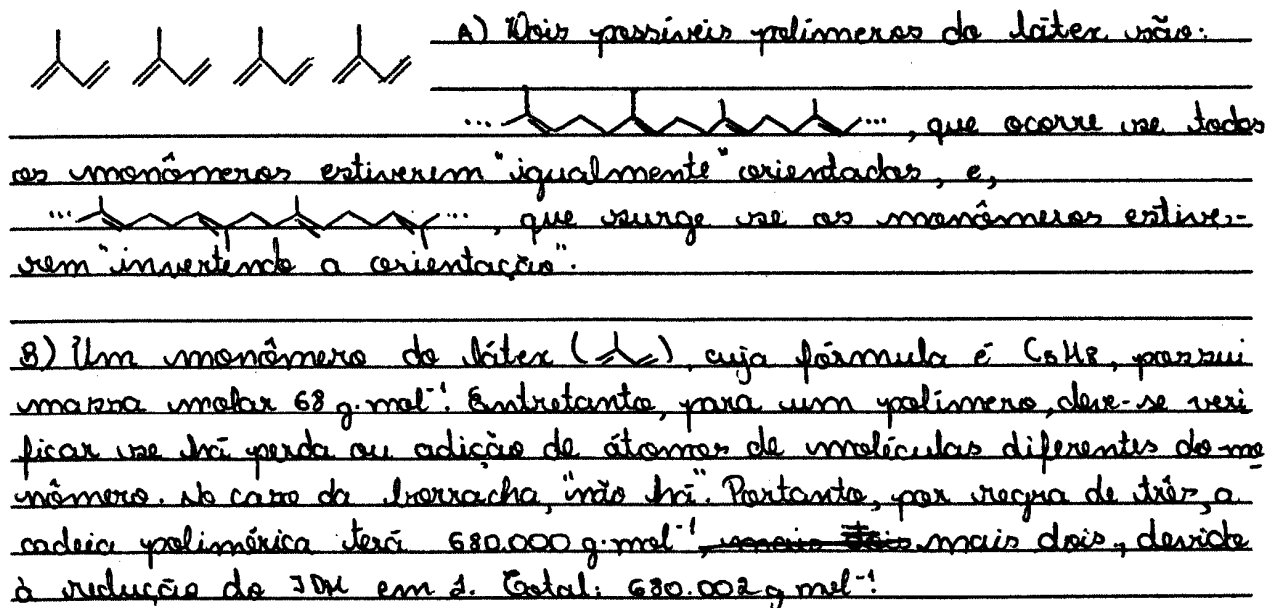 A) Dois possíveis polímeros do látex são:
... ..., que ocorre se todos
os monômeros estiverem "igualmente" orientados, e,
... ..., que surge se os monômeros estive-
rem "invertendo a orientação".
B) Um monômero do látex ( ), cuja fórmula é C5H8, possui
massa molar 68 g.mol⁻¹. Entretanto, para um polímero, deve-se veri
ficar se há perda ou adição de átomos de moléculas diferentes do mo
nômero. No caso da borracha, "não há". Portanto, por regra de três, a
cadeia polimérica terá 680.000 g.mol⁻¹, mais dois, devido
à redução do IDH em 1. Total: 680.002 g mol⁻¹.